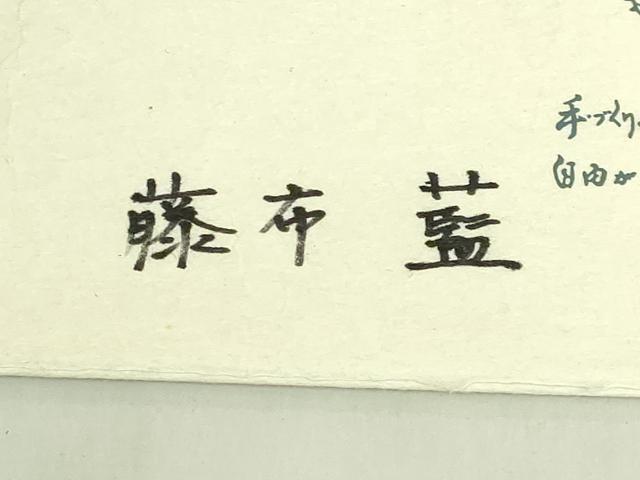 藤布 藍
手づくり
自由が